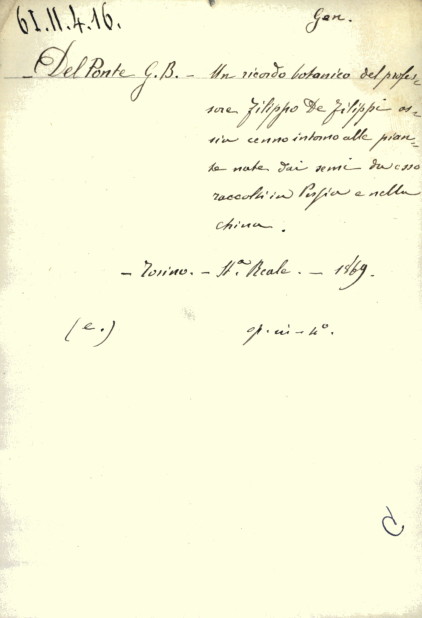 61.II.4.16.
Gen.
Del Ponte G.B. - Un ricordo botanico del profes-
sore Filippo De Filippi os-
sia cenno intorno alle pian-
te nate dai semi da esso
raccolti in Persia e nella
China.
- Torino. - St.a Reale. - 1869.
(e.) op. in - 4°.